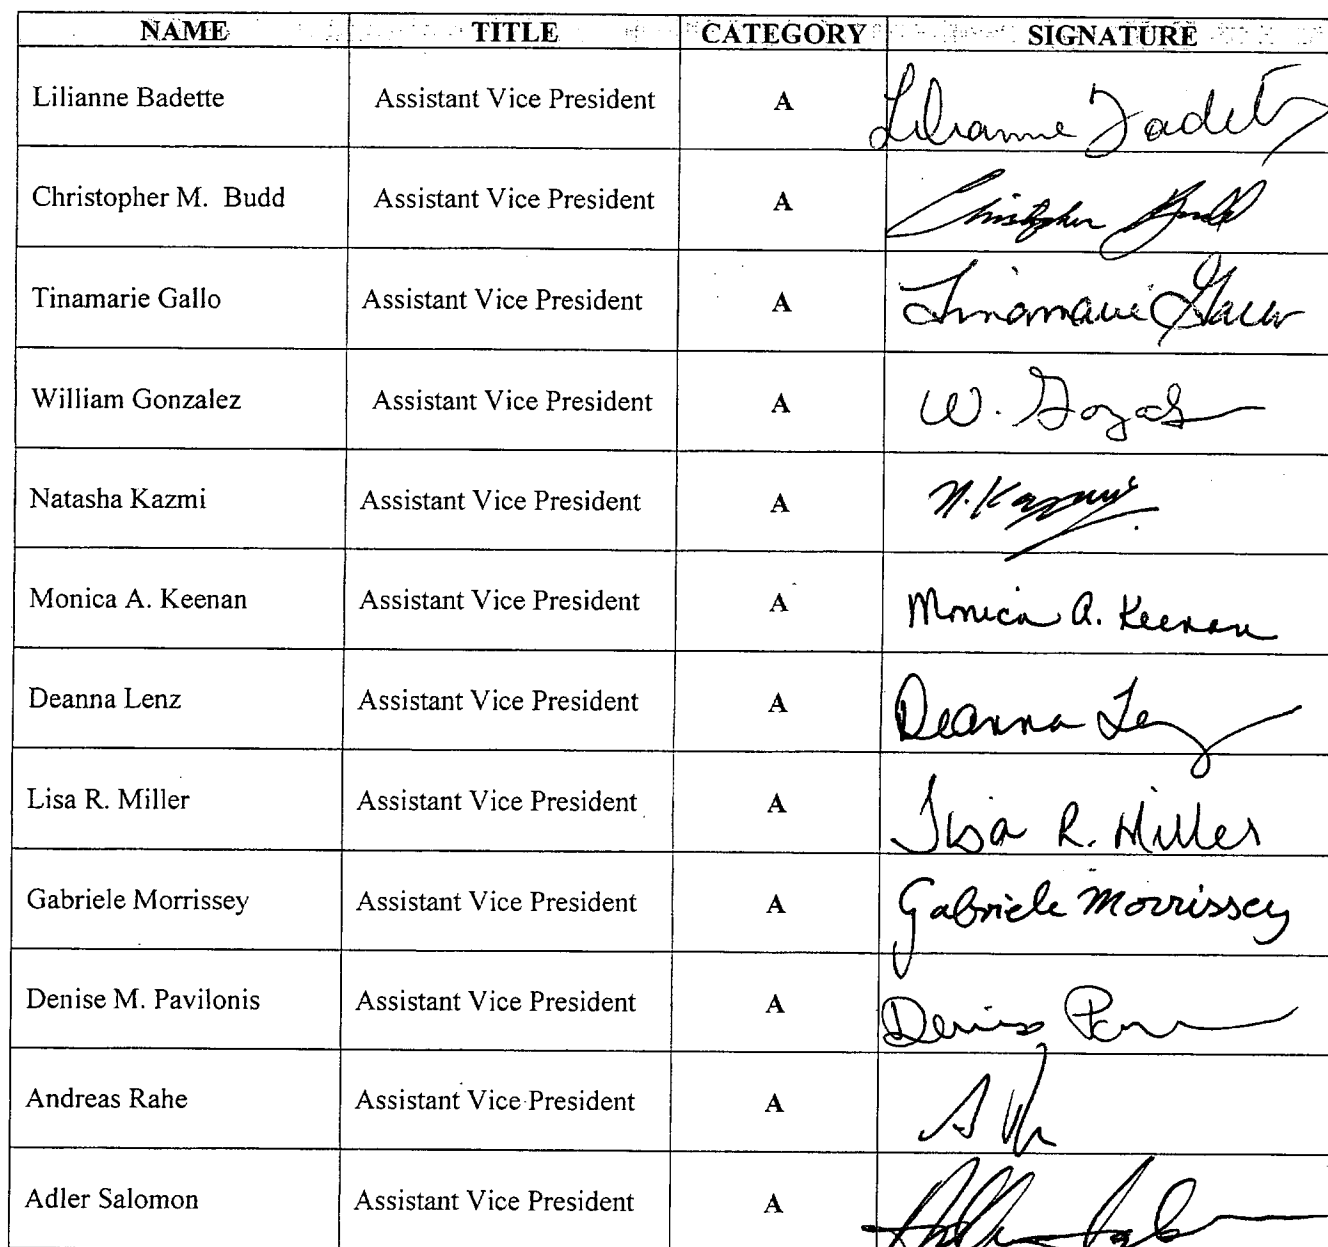 NAME TITLE CATEGORY SIGNATURE
Lilianne Badette Assistant Vice President A Lilianne Badette
Christopher M. Budd Assistant Vice President A Christopher Budd
Tinamarie Gallo Assistant Vice President A Tinamarie Gallo
William Gonzalez Assistant Vice President A W.
Natasha Kazmi Assistant Vice President A N. Kazmi
Monica A. Keenan Assistant Vice President A Monica A. Keenan
Deanna Lenz Assistant Vice President A Deanna Lenz
Lisa R. Miller Assistant Vice President A Lisa R. Miller
Gabriele Morrissey Assistant Vice President A Gabriele Morrissey
Denise M. Pavilonis Assistant Vice President A Denise
Andreas Rahe Assistant Vice President A
Adler Salomon Assistant Vice President A